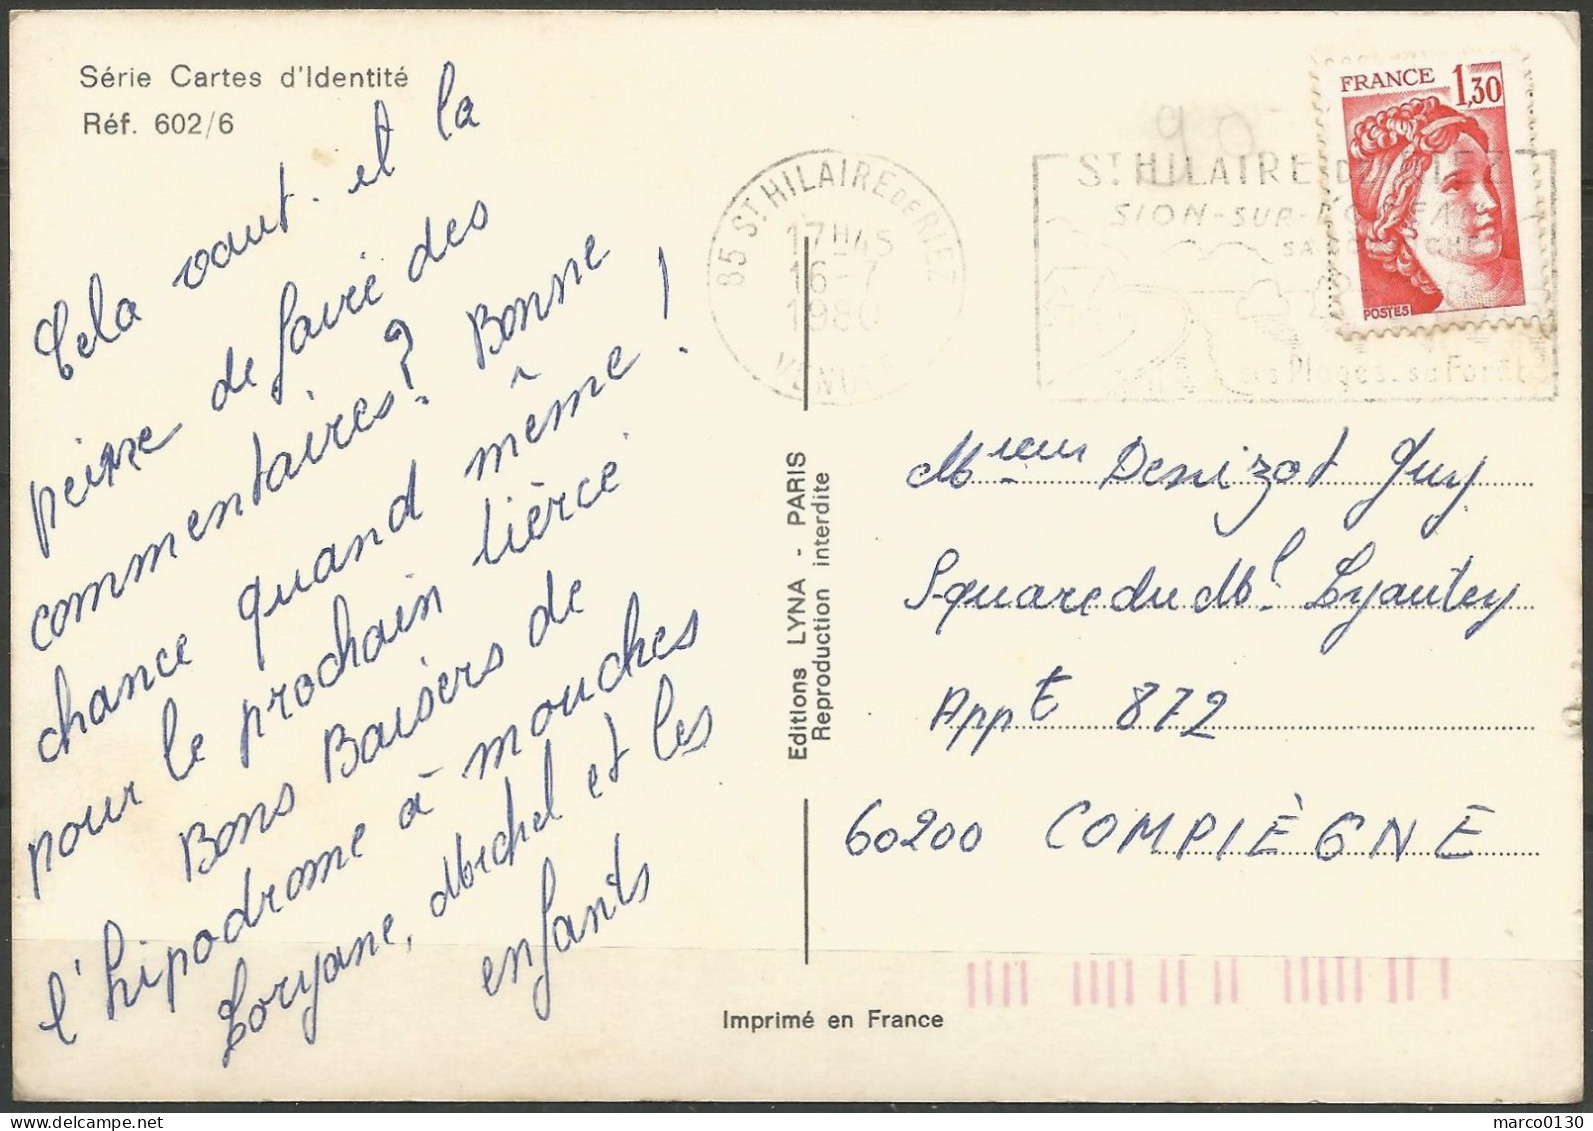 Série Cartes d'Identité
Réf. 602/6
Cela vaut-et la
peine de faire des
commentaires? Bonne
chance quand même !
pour le prochain tiercé
Bons Baisers de
l'hipodrome à mouches
Loryane, Michel et les
enfants
Editions LYNA - PARIS
Reproduction interdite
Imprimé en France
85 ST HILAIRE DE RIEZ
17H45
16-7
1980
VENDEE
90
ST HILAIRE DE RIEZ
SION-SUR-L'OCEAN
ses Plages. sa Forêt
FRANCE 1,30
POSTES
Mr Denizot Guy
Square du Ml Lyautey
Appt 872
60200 COMPIÈGNE
marco0130